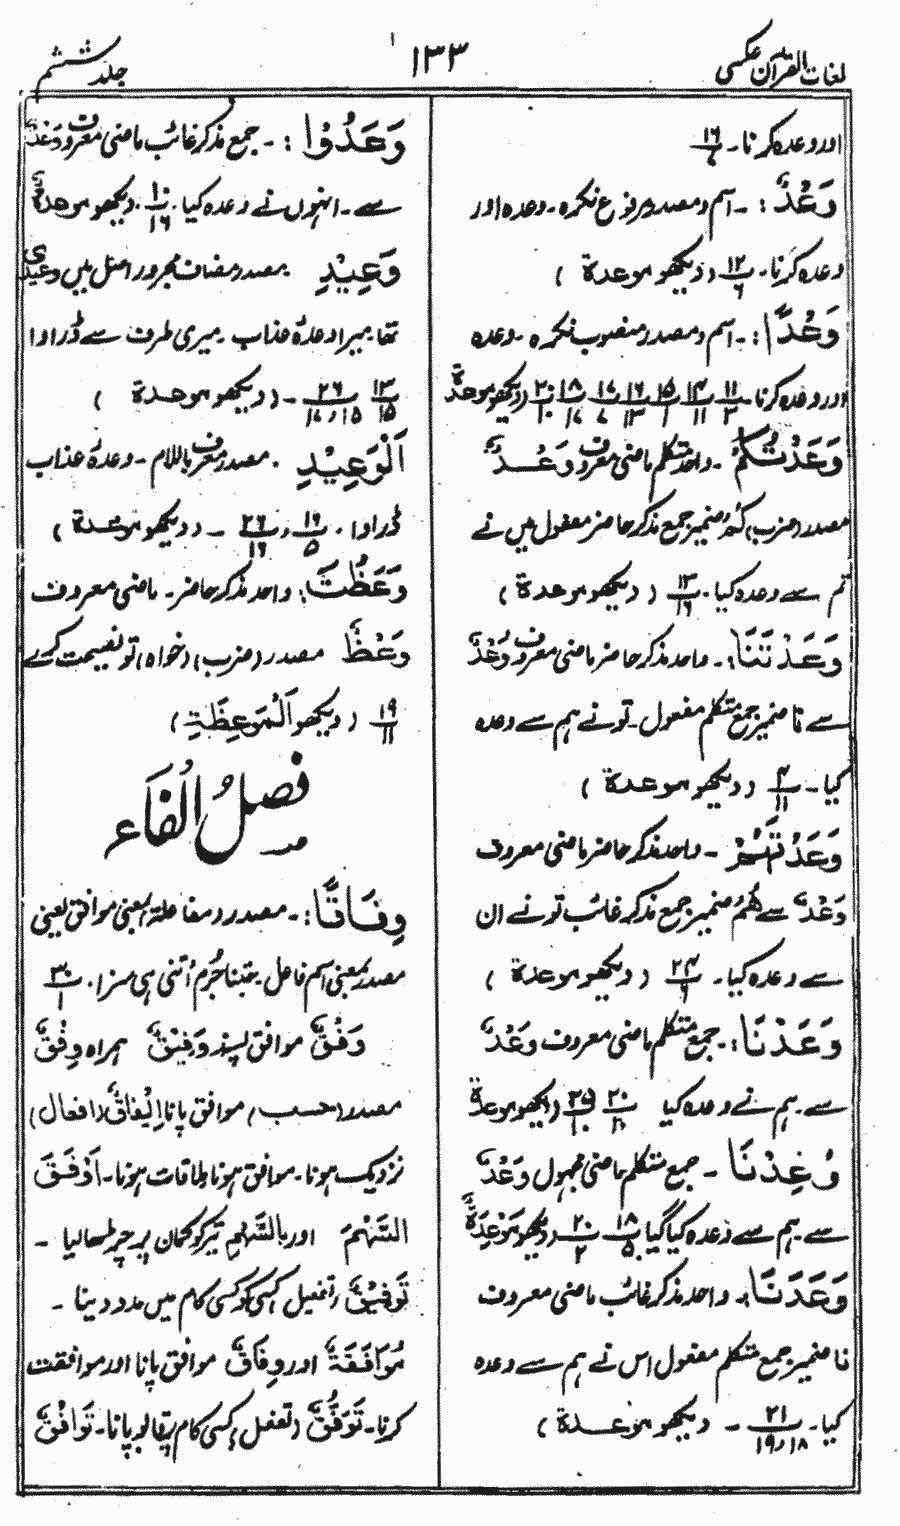 لغات القرآن عکسی
۱۳۳
جلد ششم
اور وعدہ کرنا۔ ۱۶
وَعْدٌ :۔ اسم و مصدر مرفوع نکرہ۔ وعدہ اور
وعدہ کرنا۔ ۱۲/۶ (دیکھو موعدة)
وَعْدًا :۔ اسم و مصدر منصوب نکرہ۔ وعدہ
اور وعدہ کرنا۔ (دیکھو موعدة)
وَعَدْتُّكُمْ ۔ واحد متکلم ماضی معروف وَعْدٌ
مصدر (ضرب) كُمْ ضمیر جمع مذکر حاضر مفعول میں نے
تم سے وعدہ کیا۔ ۱۳/۱۶ (دیکھو موعدة)
وَعَدْتَّنَا :۔ واحد مذکر حاضر ماضی معروف وَعْدٌ
سے نا ضمیر جمع متکلم مفعول۔ تو نے ہم سے وعدہ
کیا۔ ۴/۱۱ (دیکھو موعدة)
وَعَدْتَّهُمْ ۔ واحد مذکر حاضر ماضی معروف
وَعْدٌ سے هُمْ ضمیر جمع مذکر غائب تو نے ان
سے وعدہ کیا۔ ۲۴/۶ (دیکھو موعدة)
وَعَدْنَا :۔ جمع متکلم ماضی معروف وَعْدٌ
سے۔ ہم نے وعدہ کیا (دیکھو موعدة)
وُعِدْنَا ۔ جمع متکلم ماضی مجہول وَعْدٌ
سے۔ ہم سے وعدہ کیا گیا ۱۸/۵ ۲۰/۲ (دیکھو مَوْعِدَةٌ)
وَعَدَنَا :۔ واحد مذکر غائب ماضی معروف
نا ضمیر جمع متکلم مفعول اس نے ہم سے وعدہ
کیا۔ ۲۱/۱۸، ۱۹ ۔ دیکھو موعدة)
وَعَدُوْا :۔ جمع مذکر غائب ماضی معروف وَعْدٌ
سے۔ انہوں نے وعدہ کیا۔ ۱۰/۱۶ دیکھو موعدةٌ
وَعِيْدِ ۔ مصدر مضاف مجرور اصل میں وعیدی
تھا۔ میرا وعدۂ عذاب۔ میری طرف سے ڈراوا
۱۳/۱۵ ۲۶/۱۵، ۱۶ ۔ (دیکھو موعدة)
اَلْوَعِيْدِ ۔ مصدر معرف باللام۔ وعدۂ عذاب
ڈراوا۔ ۱۶/۵، ۲۶/۱۶ ۔ (دیکھو موعدة)
وَعَظْتَ : واحد مذکر حاضر۔ ماضی معروف
وَعْظٌ مصدر (ضرب) (خواہ) تو نصیحت کرے
۱۹/۱۱ (دیکھو اَلْمَوْعِظَةِ)
فصلُ الْفَاءِ
وِفَاقًا :۔ مصدر (مفاعلۃ) بمعنی موافق یعنی
مصدر بمعنی اسم فاعل۔ جتنا جُرم اُتنی ہی سزا۔ ۳۰/۱
وَفْقٌ موافق پسند وَفِيْقٌ ہمراہ وِفْقٌ
مصدر (حسب) موافق پانا اِيْفَاقٌ (افعال)
نزدیک ہونا۔ موافق ہونا ملاقات ہونا۔ اَوْفَقَ
السَّهْمَ اور بالسَّهْمِ تیر کو کمان پر چڑھالیا ۔
تَوْفِيْقٌ (تفعیل) کسی کو کسی کام میں مدد دینا ۔
مُوَافَقَةٌ اور وِفَاقٌ موافق پانا اور موافقت
کرنا۔ تَوَفُّقٌ (تفعل) کسی کام پر قابو پانا۔ تَوَافُقٌ